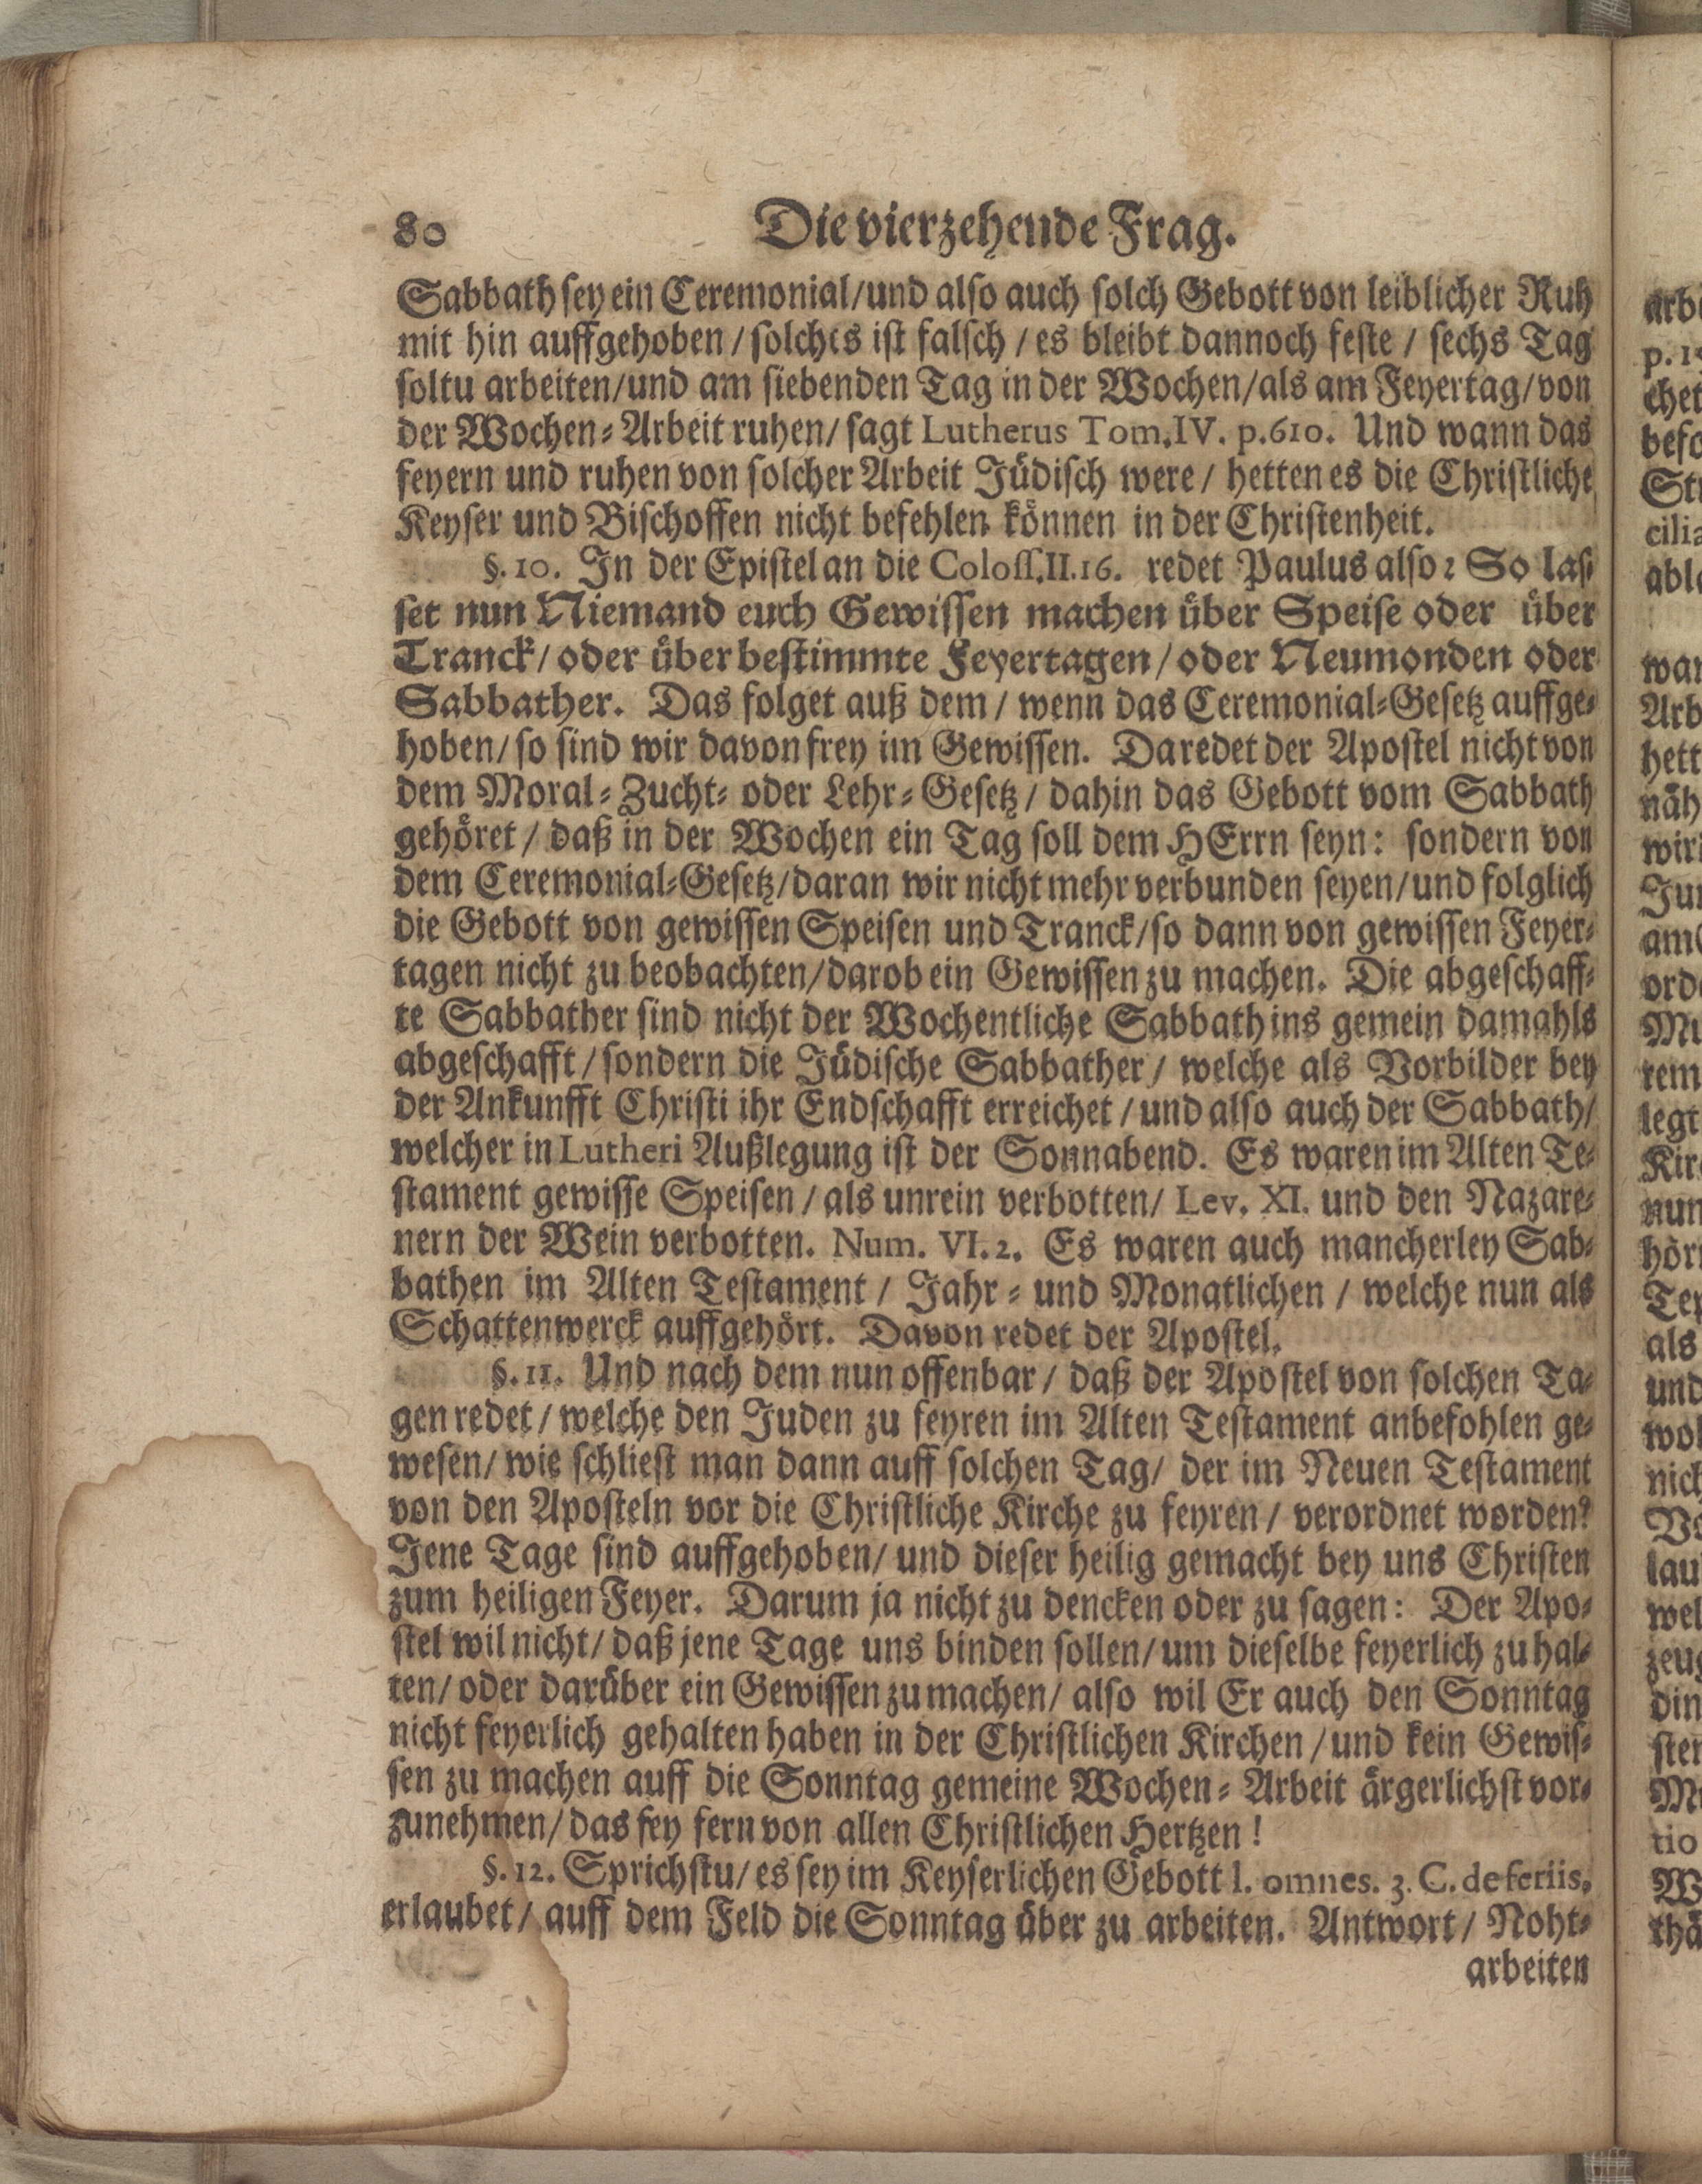 80 Die vierzehende Frag.
Sabbath sey ein Ceremonial/und also auch solch Gebott von leiblicher Ruh
mit hin auffgehoben / solches ist falsch / es bleibt dannoch feste / sechs Tag
soltu arbeiten/und am siebenden Tag in der Wochen/als am Feyertag/von
der Wochen-Arbeit ruhen/ sagt Lutherus Tom. IV. p. 610. Und wann das
feyern und ruhen von solcher Arbeit Jüdisch were / hetten es die Christliche
Keyser und Bischoffen nicht befehlen können in der Christenheit.
§. 10. In der Epistel an die Coloss. II. 16. redet Paulus also: So las-
set nun Niemand euch Gewissen machen über Speise oder über
Tranck/ oder über bestimmte Feyertagen/ oder Neumonden oder
Sabbather. Das folget auß dem / wenn das Ceremonial-Gesetz auffge-
hoben/ so sind wir davon frey im Gewissen. Da redet der Apostel nicht von
dem Moral- Zucht- oder Lehr-Gesetz / dahin das Gebott vom Sabbath
gehöret / daß in der Wochen ein Tag soll dem HErrn seyn: sondern von
dem Ceremonial-Gesetz/daran wir nicht mehr verbunden seyen/und folglich
die Gebott von gewissen Speisen und Tranck/so dann von gewissen Feyer-
tagen nicht zu beobachten/darob ein Gewissen zu machen. Die abgeschaff-
te Sabbather sind nicht der Wochentliche Sabbath ins gemein damahls
abgeschafft / sondern die Jüdische Sabbather / welche als Vorbilder bey
der Ankunfft Christi ihr Endschafft erreichet / und also auch der Sabbath/
welcher in Lutheri Außlegung ist der Sonnabend. Es waren im Alten Te-
stament gewisse Speisen / als unrein verbotten/ Lev. XI. und den Nazare-
nern der Wein verbotten. Num. VI. 2. Es waren auch mancherley Sab-
bathen im Alten Testament / Jahr- und Monatlichen / welche nun als
Schattenwerck auffgehört. Davon redet der Apostel.
§. 11. Und nach dem nun offenbar / daß der Apostel von solchen Ta-
gen redet / welche den Juden zu feyren im Alten Testament anbefohlen ge-
wesen/ wie schliest man dann auff solchen Tag/ der im Neuen Testament
von den Aposteln vor die Christliche Kirche zu feyren / verordnet worden?
Jene Tage sind auffgehoben/ und dieser heilig gemacht bey uns Christen
zum heiligen Feyer. Darum ja nicht zu dencken oder zu sagen: Der Apo-
stel wil nicht/ daß jene Tage uns binden sollen/ um dieselbe feyerlich zu hal-
ten/ oder darüber ein Gewissen zu machen/ also wil Er auch den Sonntag
nicht feyerlich gehalten haben in der Christlichen Kirchen / und kein Gewis-
sen zu machen auff die Sonntag gemeine Wochen-Arbeit ärgerlichst vor-
zunehmen/ das sey fern von allen Christlichen Hertzen!
§. 12. Sprichstu/ es sey im Keyserlichen Gebott l. omnes. 3. C. de feriis,
erlaubet / auff dem Feld die Sonntag über zu arbeiten. Antwort / Noht-
arbeiten